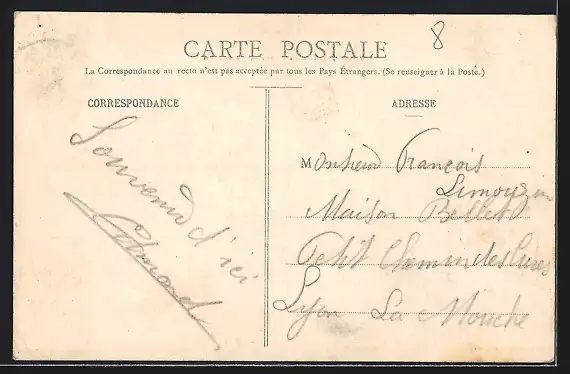 8
CARTE POSTALE
La Correspondance au recto n'est pas acceptée par tous les Pays Étrangers. (Se renseigner à la Poste.)
CORRESPONDANCE
Souvenir d'ici
Edmond
ADRESSE
Monsieur François
Limouzin
Maison
Petit Chemin des Cures
Lyon La Mouche